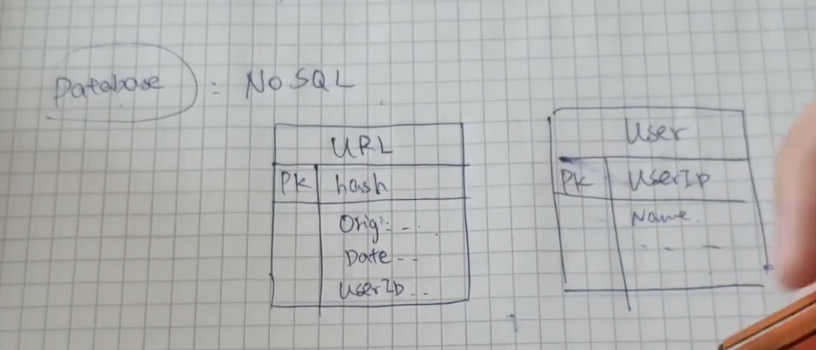 Database : NoSQL
URL
PK hash
Orig: - -
Date - -
UserID - -
User
PK UserID
Name.
- - -